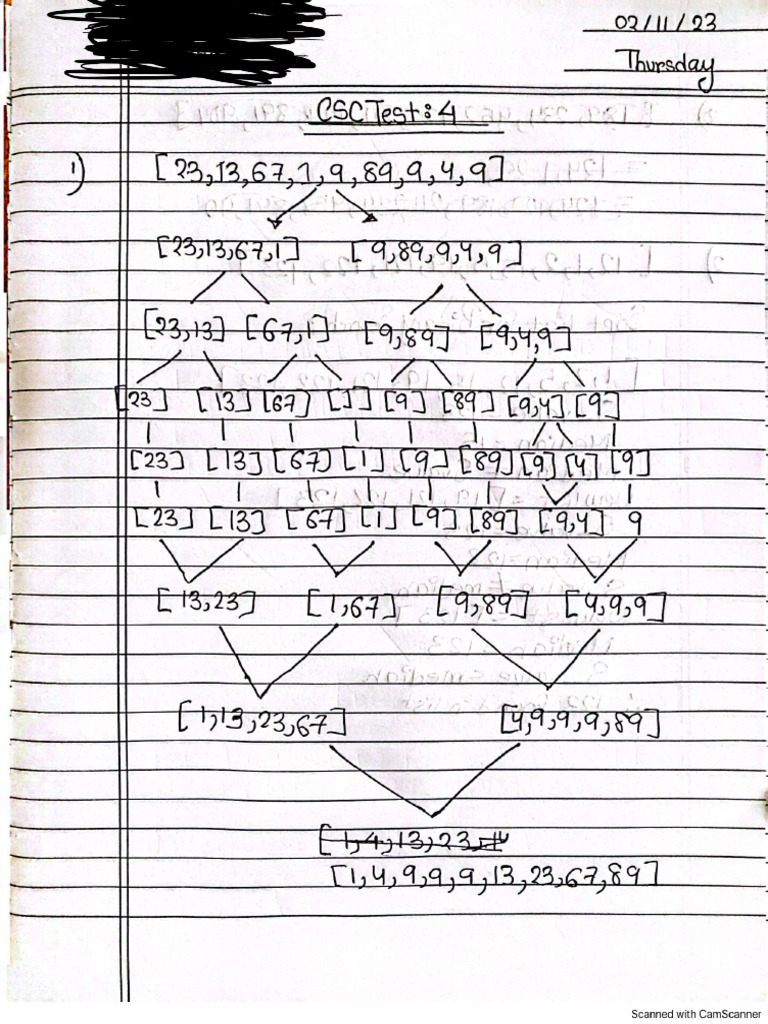 02/11/23
Thursday
CSC Test: 4
1)
[23,13,67,1,9,89,9,4,9]
[23,13,67,1] [9,89,9,4,9]
[23,13] [67,1] [9,89] [9,4,9]
[23] [13] [67] [1] [9] [89] [9,4] [9]
[23] [13] [67] [1] [9] [89] [9] [4] [9]
[23] [13] [67] [1] [9] [89] [9,4] 9
[13,23] [1,67] [9,89] [4,9,9]
[1,13,23,67] [4,9,9,9,89]
[1,4,13,23,
[1,4,9,9,9,13,23,67,89]
Scanned with CamScanner